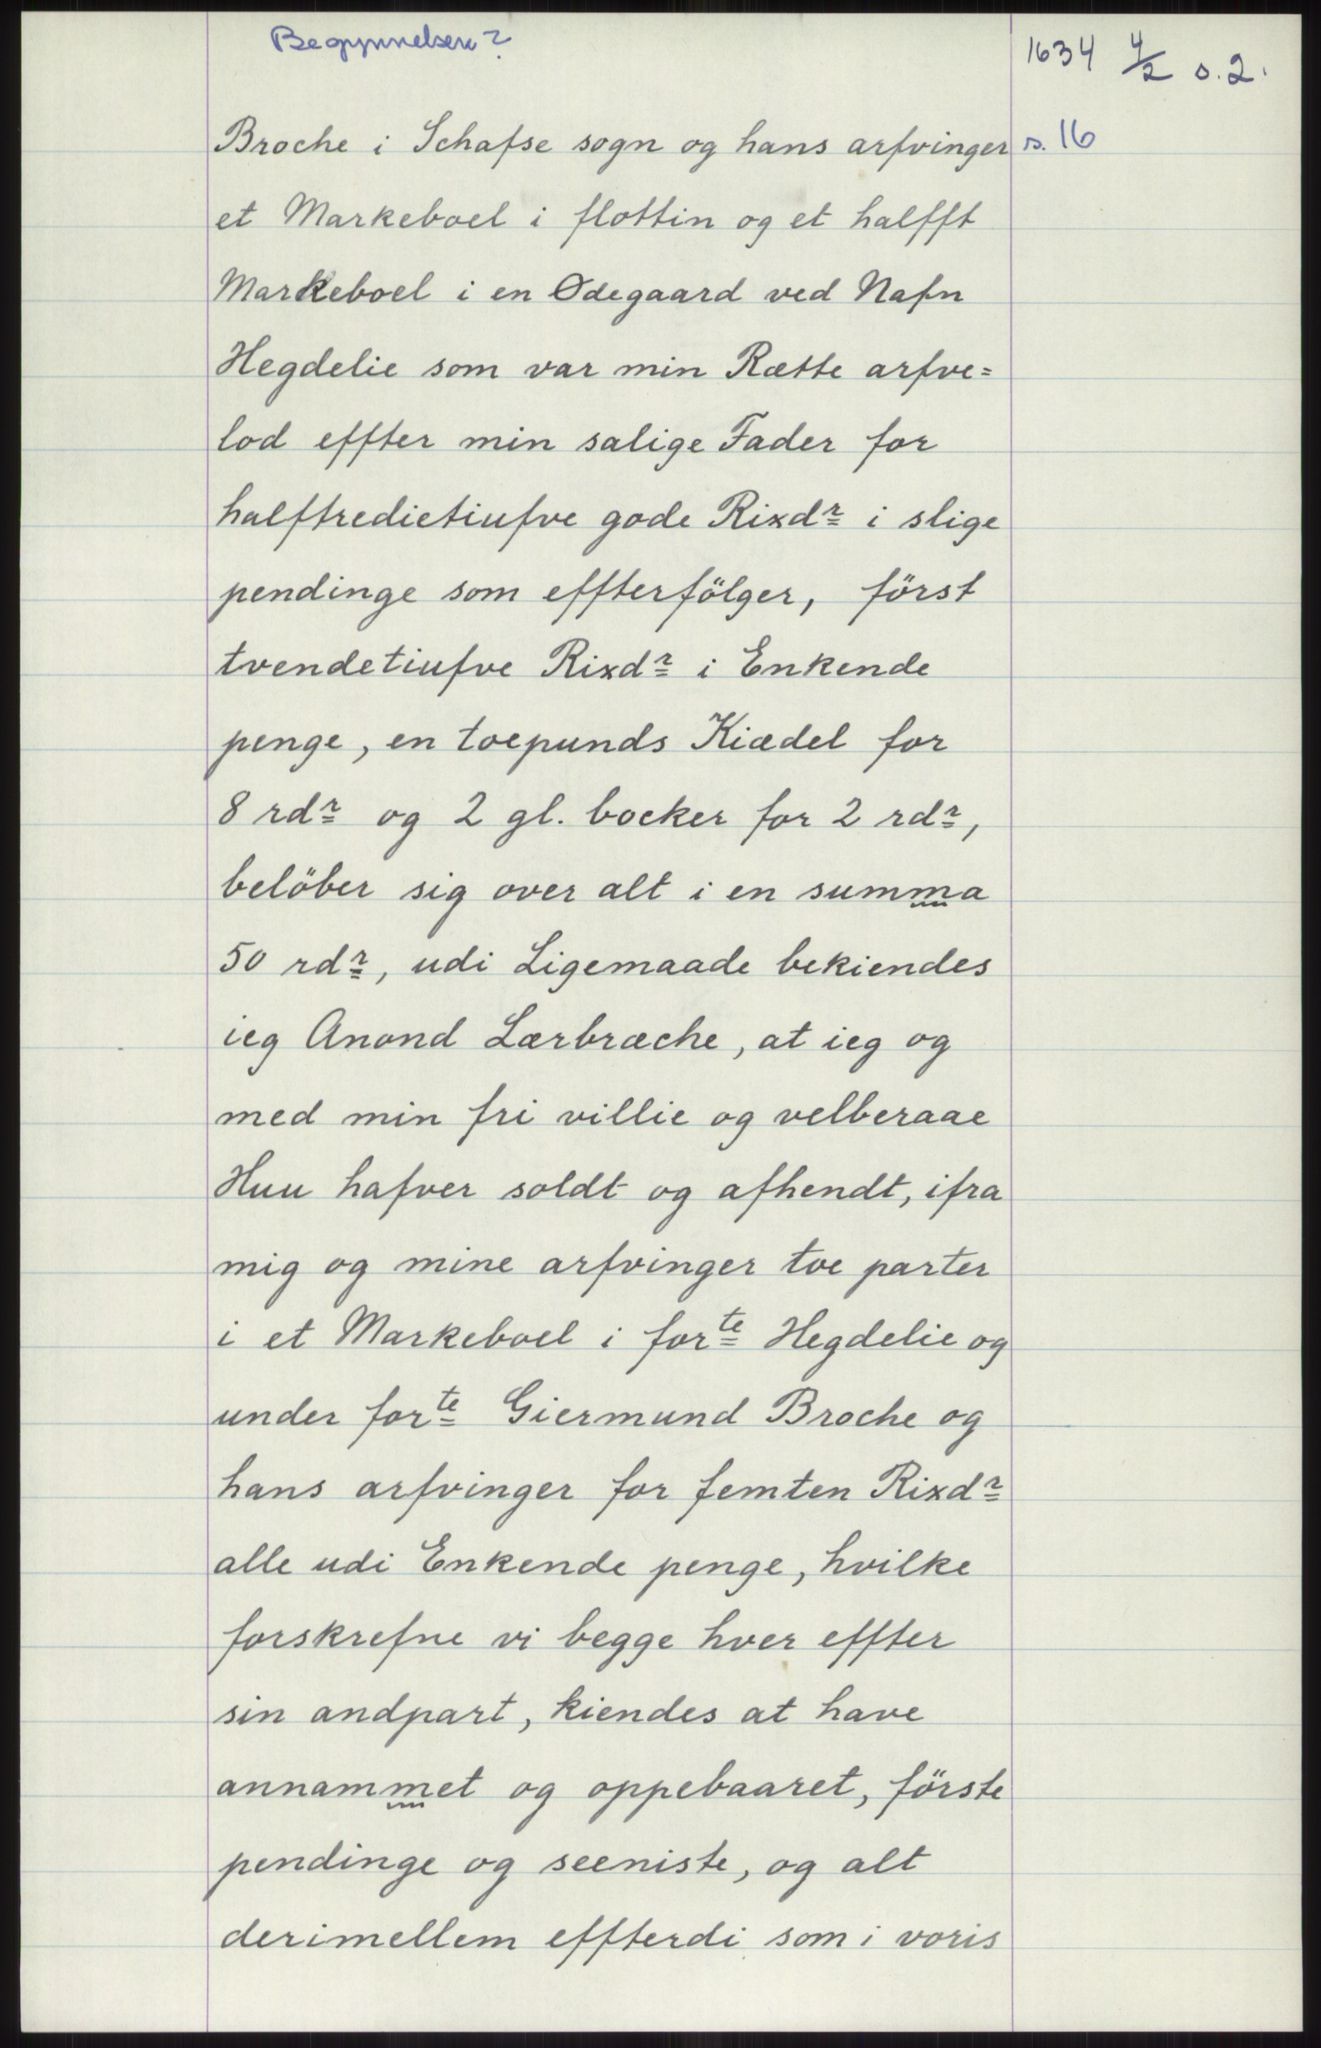 Begynnelsen?
1634 4/2 s. 2.
Broche i Schafse sogn og hans arfvinger
s. 16
et Markeboel i flottin og et halfft
Markeboel i en Ødegaard ved Nafn
Hegdelie som var min Rætte arfve=
lod effter min salige Fader for
halftredietiufve gode Rixdr i slige
pendinge som effterfölger, först
tvendetiufve Rixdr i Enkende
penge, en toepunds Kiædel for
8 rdr og 2 gl. bocker for 2 rdr,
belöber sig over alt i en summa
50 rdr, udi Ligemaade bekiendes
ieg Anond Lærbræche, at ieg og
med min fri villie og velberaae
Huu hafver soldt og afhendt, ifra
mig og mine arfvinger toe parter
i et Markeboel i forte Hegdelie og
under forte Giermund Broche og
hans arfvinger for femten Rixdr
alle udi Enkende penge, hvilke
forskrefne vi begge hver effter
sin andpart, kiendes at have
annammet og oppebaaret, förste
pendinge og seeniste, og alt
derimellem effterdi som i voris